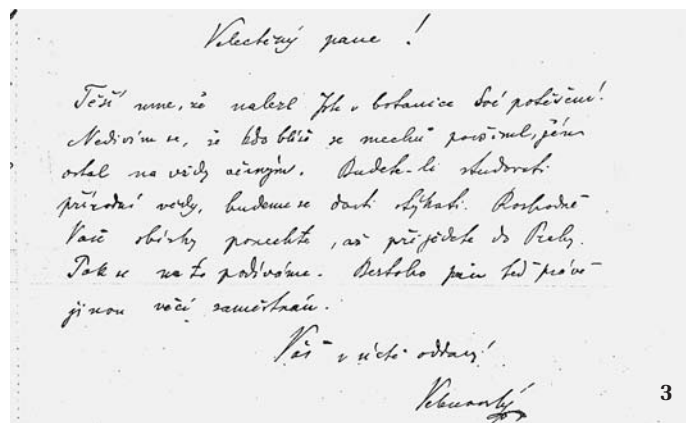 Velectěný pane!
Těší mne, že nalezl jste v botanice své potěšení!
Nedivím se, že kdo blíže se mechů povšiml, jim
ostal na vždy věrným. Budete-li studovati
přírodní vědy, budeme se dosti stýkati. Rozhodně
Vaše sbírky ponechte, až přijedete do Prahy.
Pak se na to podíváme. Beztoho jsem teď právě
jinou věcí zaměstnán.
Váš v úctě oddaný!
Velenovský
3